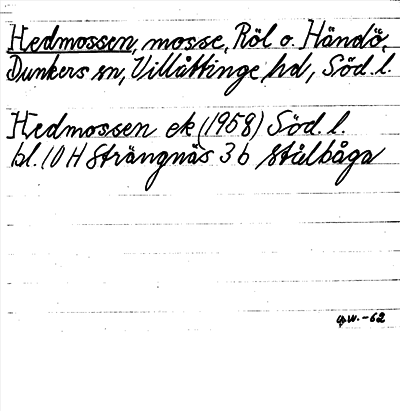 Hedmossen, mosse, Röl o. Händö,
Dunkers sn, Villåttinge hd, Söd. l.
Hedmossen ek (1958) Söd. l.
bl. 10 H Strängnäs 3 b Stålbåga
-62